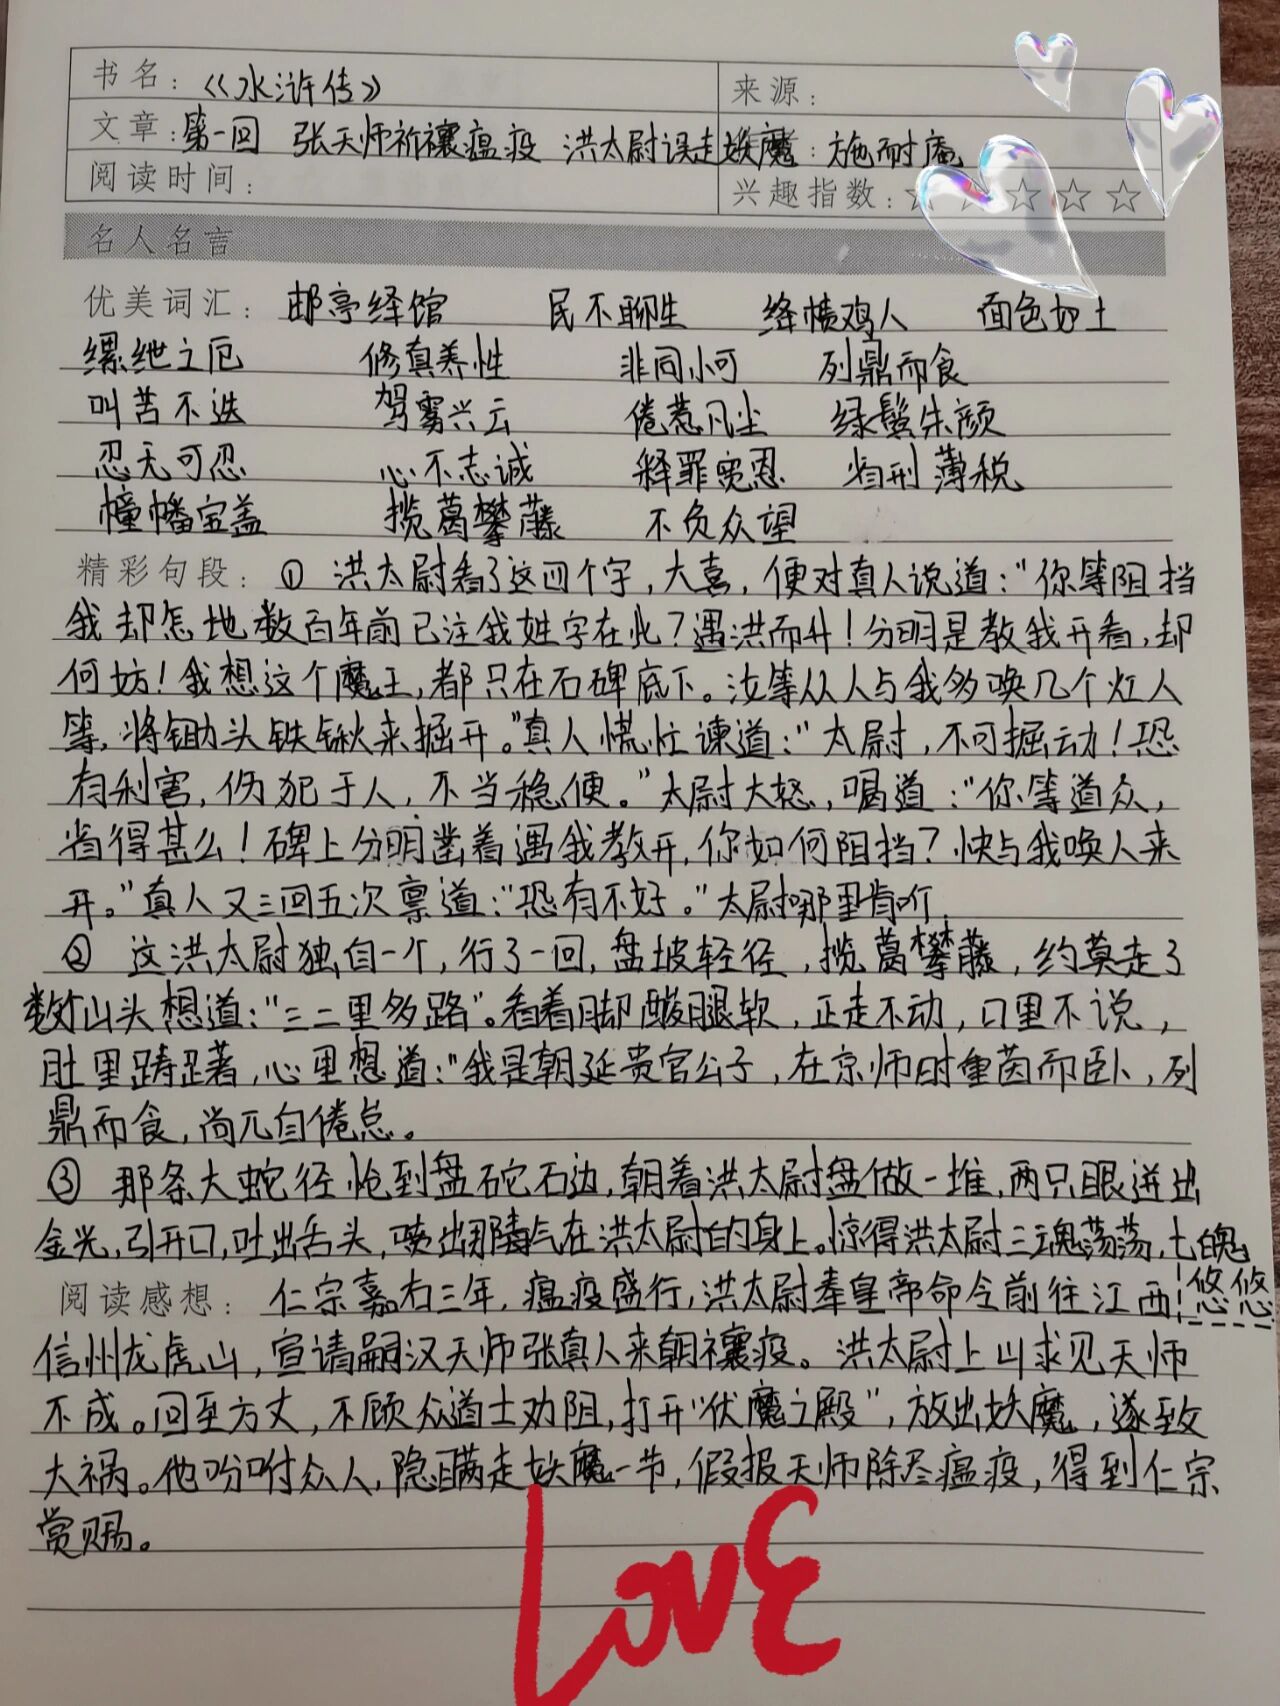 书名: 《水浒传》 来源:
文章: 第一回 张天师祈禳瘟疫 洪太尉误走妖魔 : 施耐庵
阅读时间: 兴趣指数: ☆☆☆☆☆
名人名言
优美词汇: 邮亭绎馆 民不聊生 绛帻鸡人 面色如土
缧绁之厄 修真养性 非同小可 列鼎而食
叫苦不迭 驾雾兴云 倦惹凡尘 绿鬓朱颜
忍无可忍 心不志诚 释罪宽恩 省刑薄税
幢幡宝盖 揽葛攀藤 不负众望
精彩句段: ① 洪太尉看了这四个字,大喜,便对真人说道:"你等阻挡
我却怎地数百年前已注我姓字在此?遇洪而开!分明是教我开看,却
何妨!我想这个魔王,都只在石碑底下。汝等从人与我多唤几个火工人
等,将锄头铁锹来掘开。"真人慌忙谏道:"太尉,不可掘动!恐
有利害,伤犯于人,不当稳便。"太尉大怒,喝道:"你等道众,
省得甚么!碑上分明凿着遇我教开,你如何阻挡?快与我唤人来
开。"真人又三回五次禀道:"恐有不好。"太尉哪里肯听.
② 这洪太尉独自一个,行了一回,盘坡轻径,揽葛攀藤,约莫走了
数个山头想道:"三二里多路"。看看脚酸腿软,正走不动,口里不说,
肚里踌躇著,心里想道:"我是朝廷贵官公子,在京师时重茵而卧,列
鼎而食,尚兀自倦怠。
③ 那条大蛇径抢到盘砣石边,朝着洪太尉盘做一堆,两只眼迸出
金光,引开口,吐出舌头,喷出那毒气在洪太尉的身上。惊得洪太尉三魂荡荡,七魄
悠悠
阅读感想: 仁宗嘉右三年,瘟疫盛行,洪太尉奉皇帝命令前往江西
信州龙虎山,宣请嗣汉天师张真人来朝禳疫。洪太尉上山求见天师
不成。回至方丈,不顾众道士劝阻,打开"伏魔之殿",放出妖魔,遂致
大祸。他吩咐众人,隐瞒走妖魔一节,假报天师除尽瘟疫,得到仁宗
赏赐。
LOVE